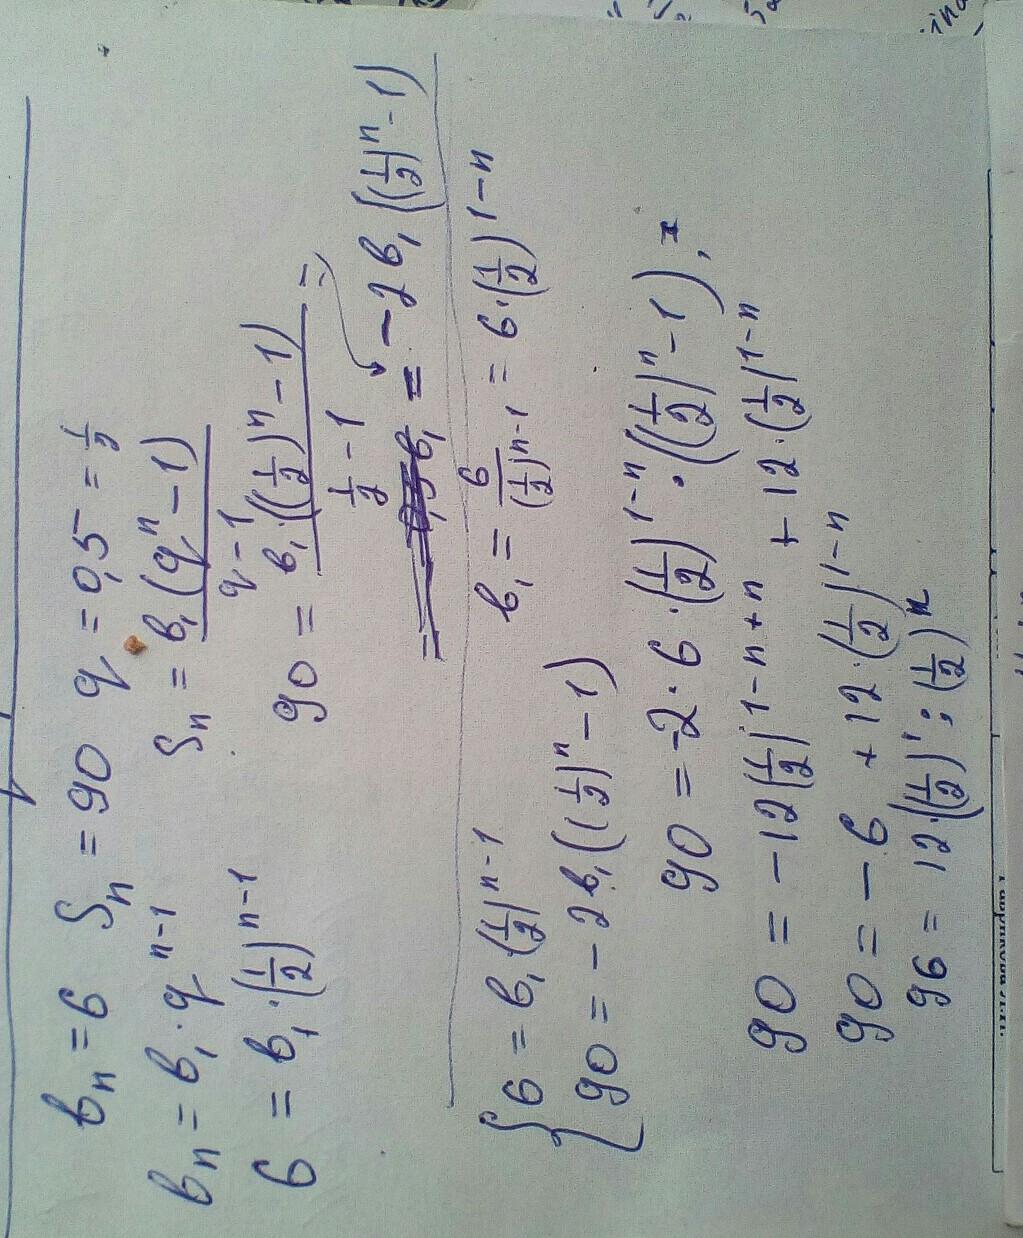 bₙ = 6 Sₙ = 90 q = 0,5 = 1/2
bₙ = b₁ · qⁿ⁻¹ Sₙ = b₁(qⁿ - 1) / (q - 1)
6 = b₁ · (1/2)ⁿ⁻¹ 90 = b₁ · ((1/2)ⁿ - 1) / (1/2 - 1) =
= -2b₁((1/2)ⁿ - 1)
{ 6 = b₁(1/2)ⁿ⁻¹ b₁ = 6 / (1/2)ⁿ⁻¹ = 6 · (1/2)¹⁻ⁿ
90 = -2b₁((1/2)ⁿ - 1)
90 = -2 · 6 · (1/2)¹⁻ⁿ · ((1/2)ⁿ - 1)
90 = -12(1/2)¹⁻ⁿ⁺ⁿ + 12 · (1/2)¹⁻ⁿ
90 = -6 + 12 · (1/2)¹⁻ⁿ
96 = 12 · (1/2)¹ : (1/2)ⁿ